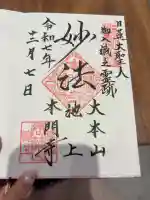 日蓮大聖人
御入滅之霊跡
大本山
池上
妙法
本門寺
令和七年
十二月七日